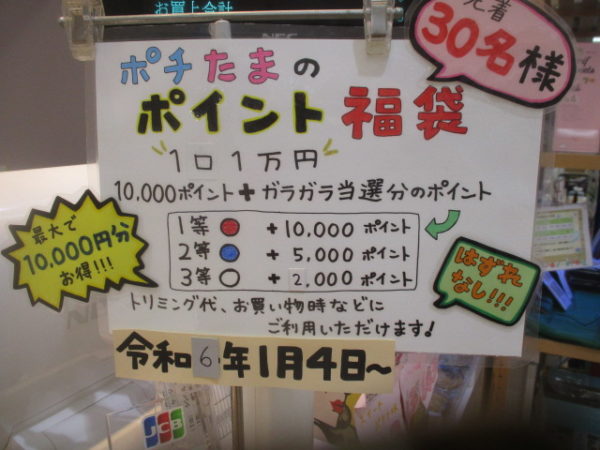 お買上合計
先着
30名様
ポチたまの
ポイント福袋
1口1万円
10,000ポイント+ガラガラ当選分のポイント
1等 + 10,000 ポイント
2等 + 5,000 ポイント
3等 + 2,000 ポイント
最大で
10,000円分
お得!!!
はずれ
なし!!!
トリミング代、お買い物時などに
ご利用いただけます!
令和6年1月4日~
JCB